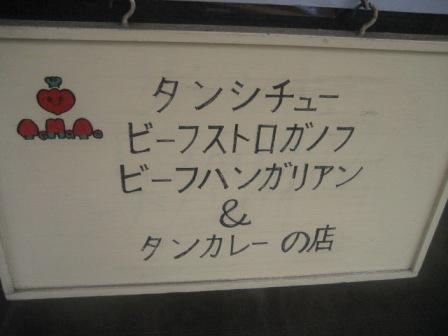 タンシチュー
ビーフストロガノフ
ビーフハンガリアン
&
タンカレーの店